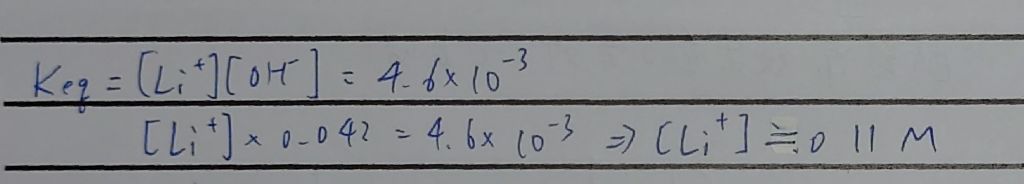 Keq = [Li⁺][OH⁻] = 4.6×10⁻³
[Li⁺] × 0.042 = 4.6×10⁻³ ⇒ [Li⁺] ≒ 0.11 M